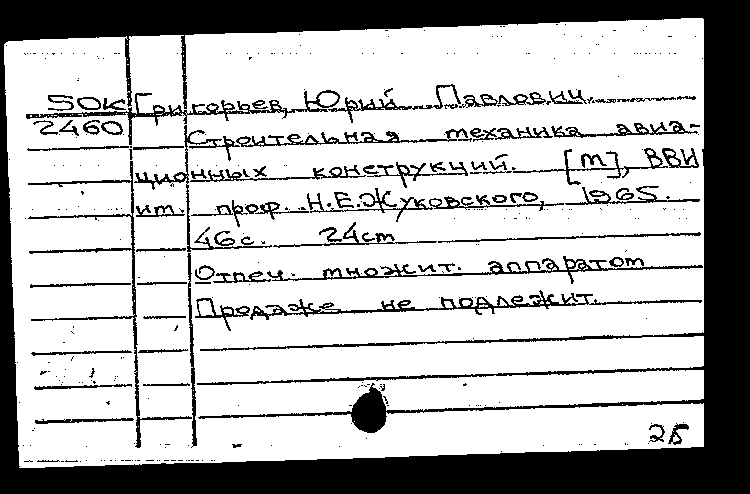 50К Григорьев, Юрий Павлович.
2460 Строительная механика авиа-
ционных конструкций. [М], ВВИ
им. проф. Н.Е.Жуковского, 1965.
46с. 24cm
Отпеч. множит. аппаратом
Продаже не подлежит.
2Б